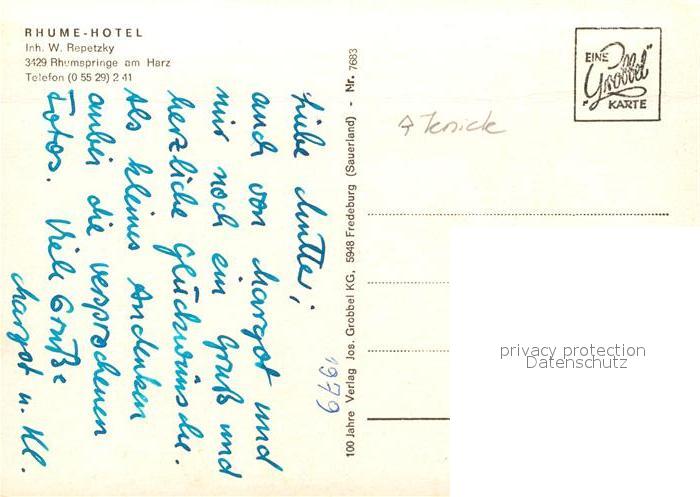 RHUME-HOTEL
Inh. W. Repetzky
3429 Rhumspringe am Harz
Telefon (0 55 29) 2 41
Liebe Mutter,
auch von Margot und
mir noch ein Gruß und
herzliche Glückwünsche.
Als kleines Andenken
anbei die versprochenen
Fotos. Viele Grüße
Margot u. Kl.
1979
100 Jahre Verlag Jos. Grobbel KG, 5948 Fredeburg (Sauerland) - Nr. 7683
EINE
"Grobbel"
KARTE
privacy protection
Datenschutz